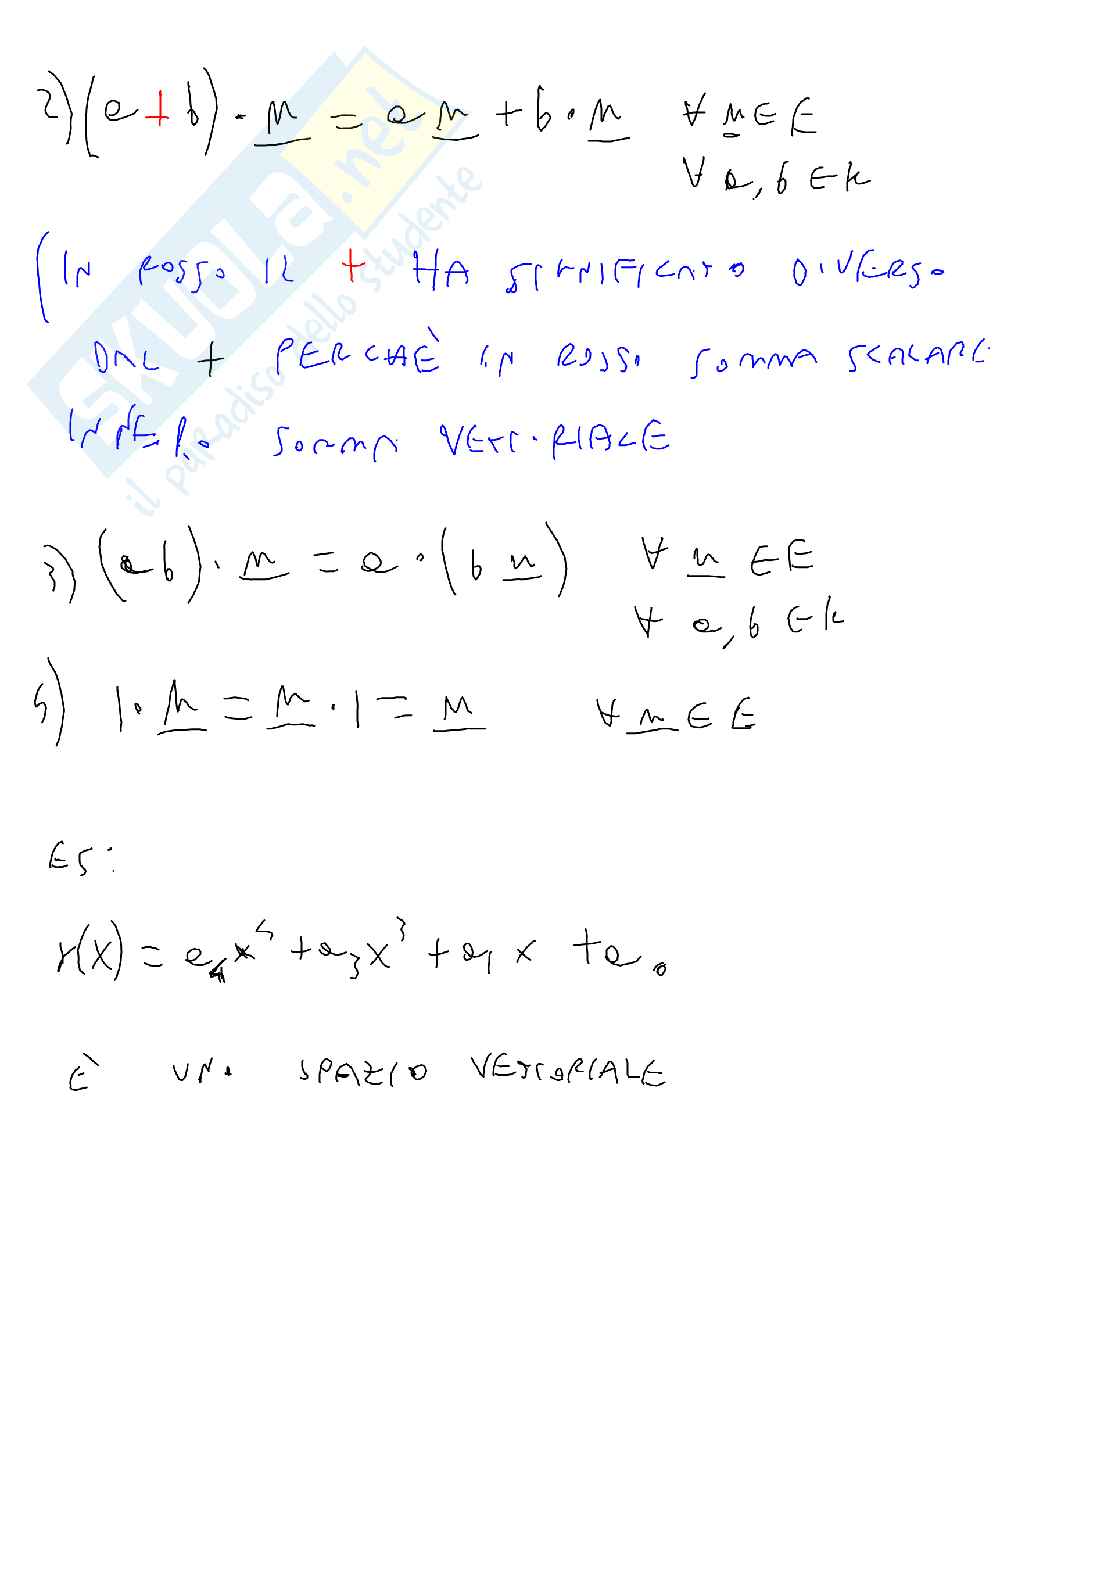 2) (a + b) · u = a u + b · u ∀ u ∈ E
∀ a, b ∈ k
(IN ROSSO IL + HA SIGNIFICATO DIVERSO
DAL + PERCHÈ IN ROSSO SOMMA SCALARE
IN NERO SOMMA VETTORIALE
3) (ab) · u = a · (b u) ∀ u ∈ E
∀ a, b ∈ k
4) 1 · u = u · 1 = u ∀ u ∈ E
ES:
r(x) = a₄x⁴ + a₃x³ + a₁ x + a₀
È UNO SPAZIO VETTORIALE
SKUOLA.net
il paradiso dello studente